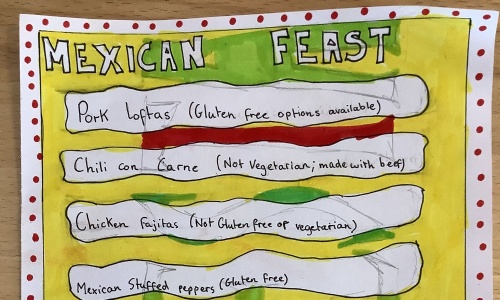 MEXICAN FEAST
Pork Loftas (Gluten free options available)
Chili con Carne (Not Vegetarian; made with beef)
Chicken Fajitas (Not Gluten free or vegetarian)
Mexican Stuffed peppers (Gluten free)